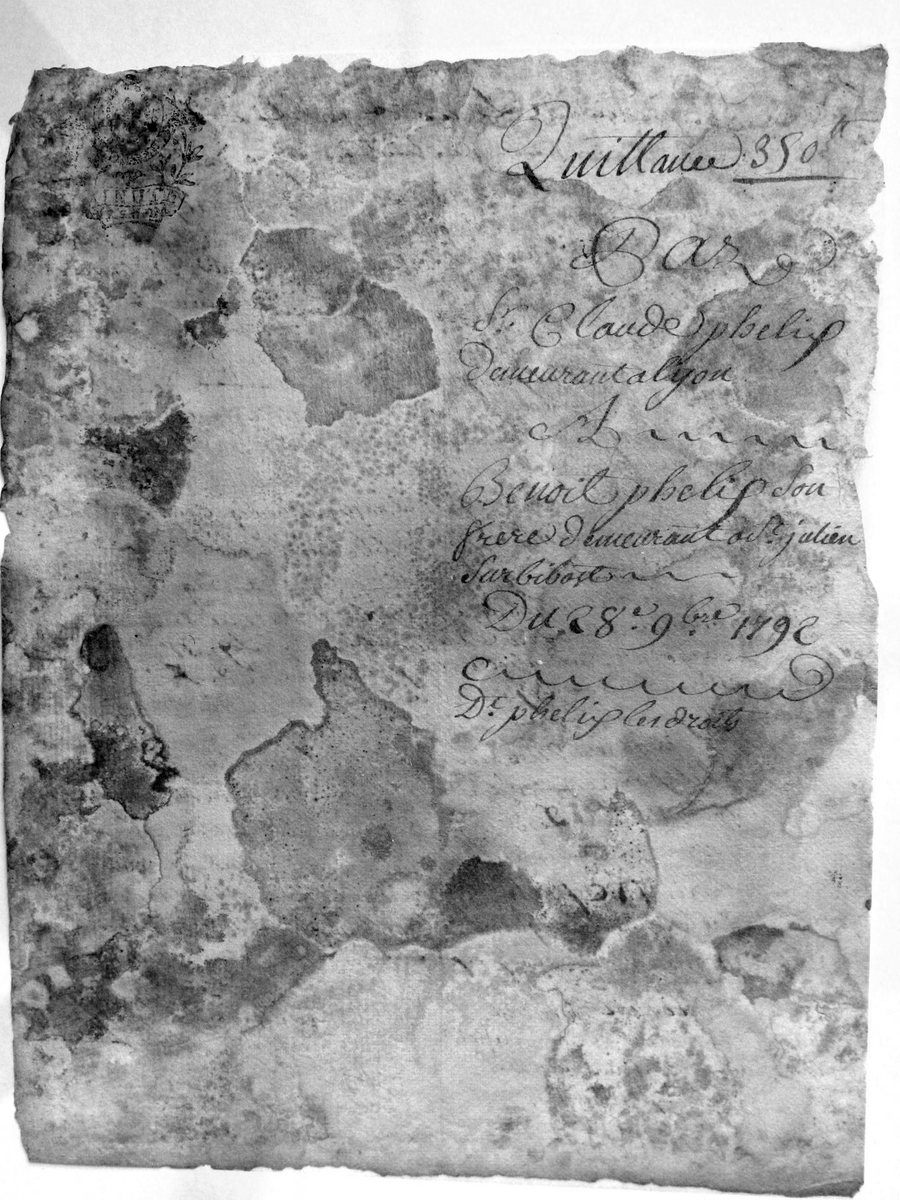 Quittance 350ᵗᵗ
Par
Sr. Claude phelip
demeurant a lyon
A
Benoit phelip Son
frere demeurant a St. julien
Sur bibost
Du 28e. 9bre 1792
Dt. phelip les droits